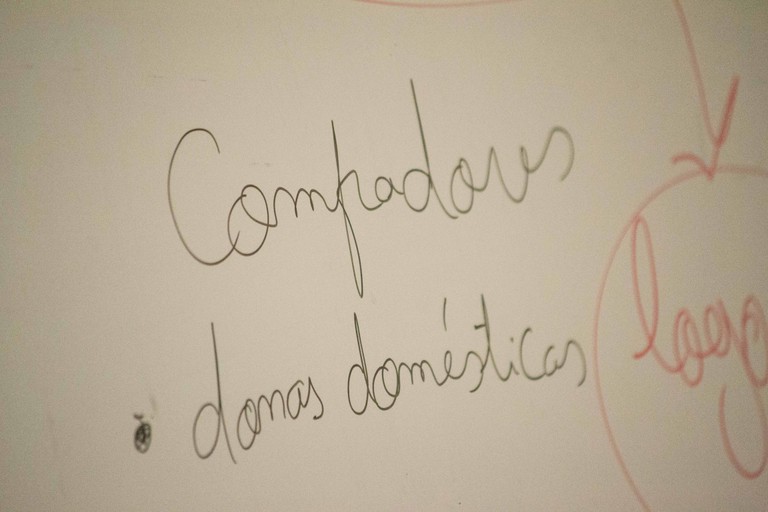 Compradores
• donas domésticas
logo